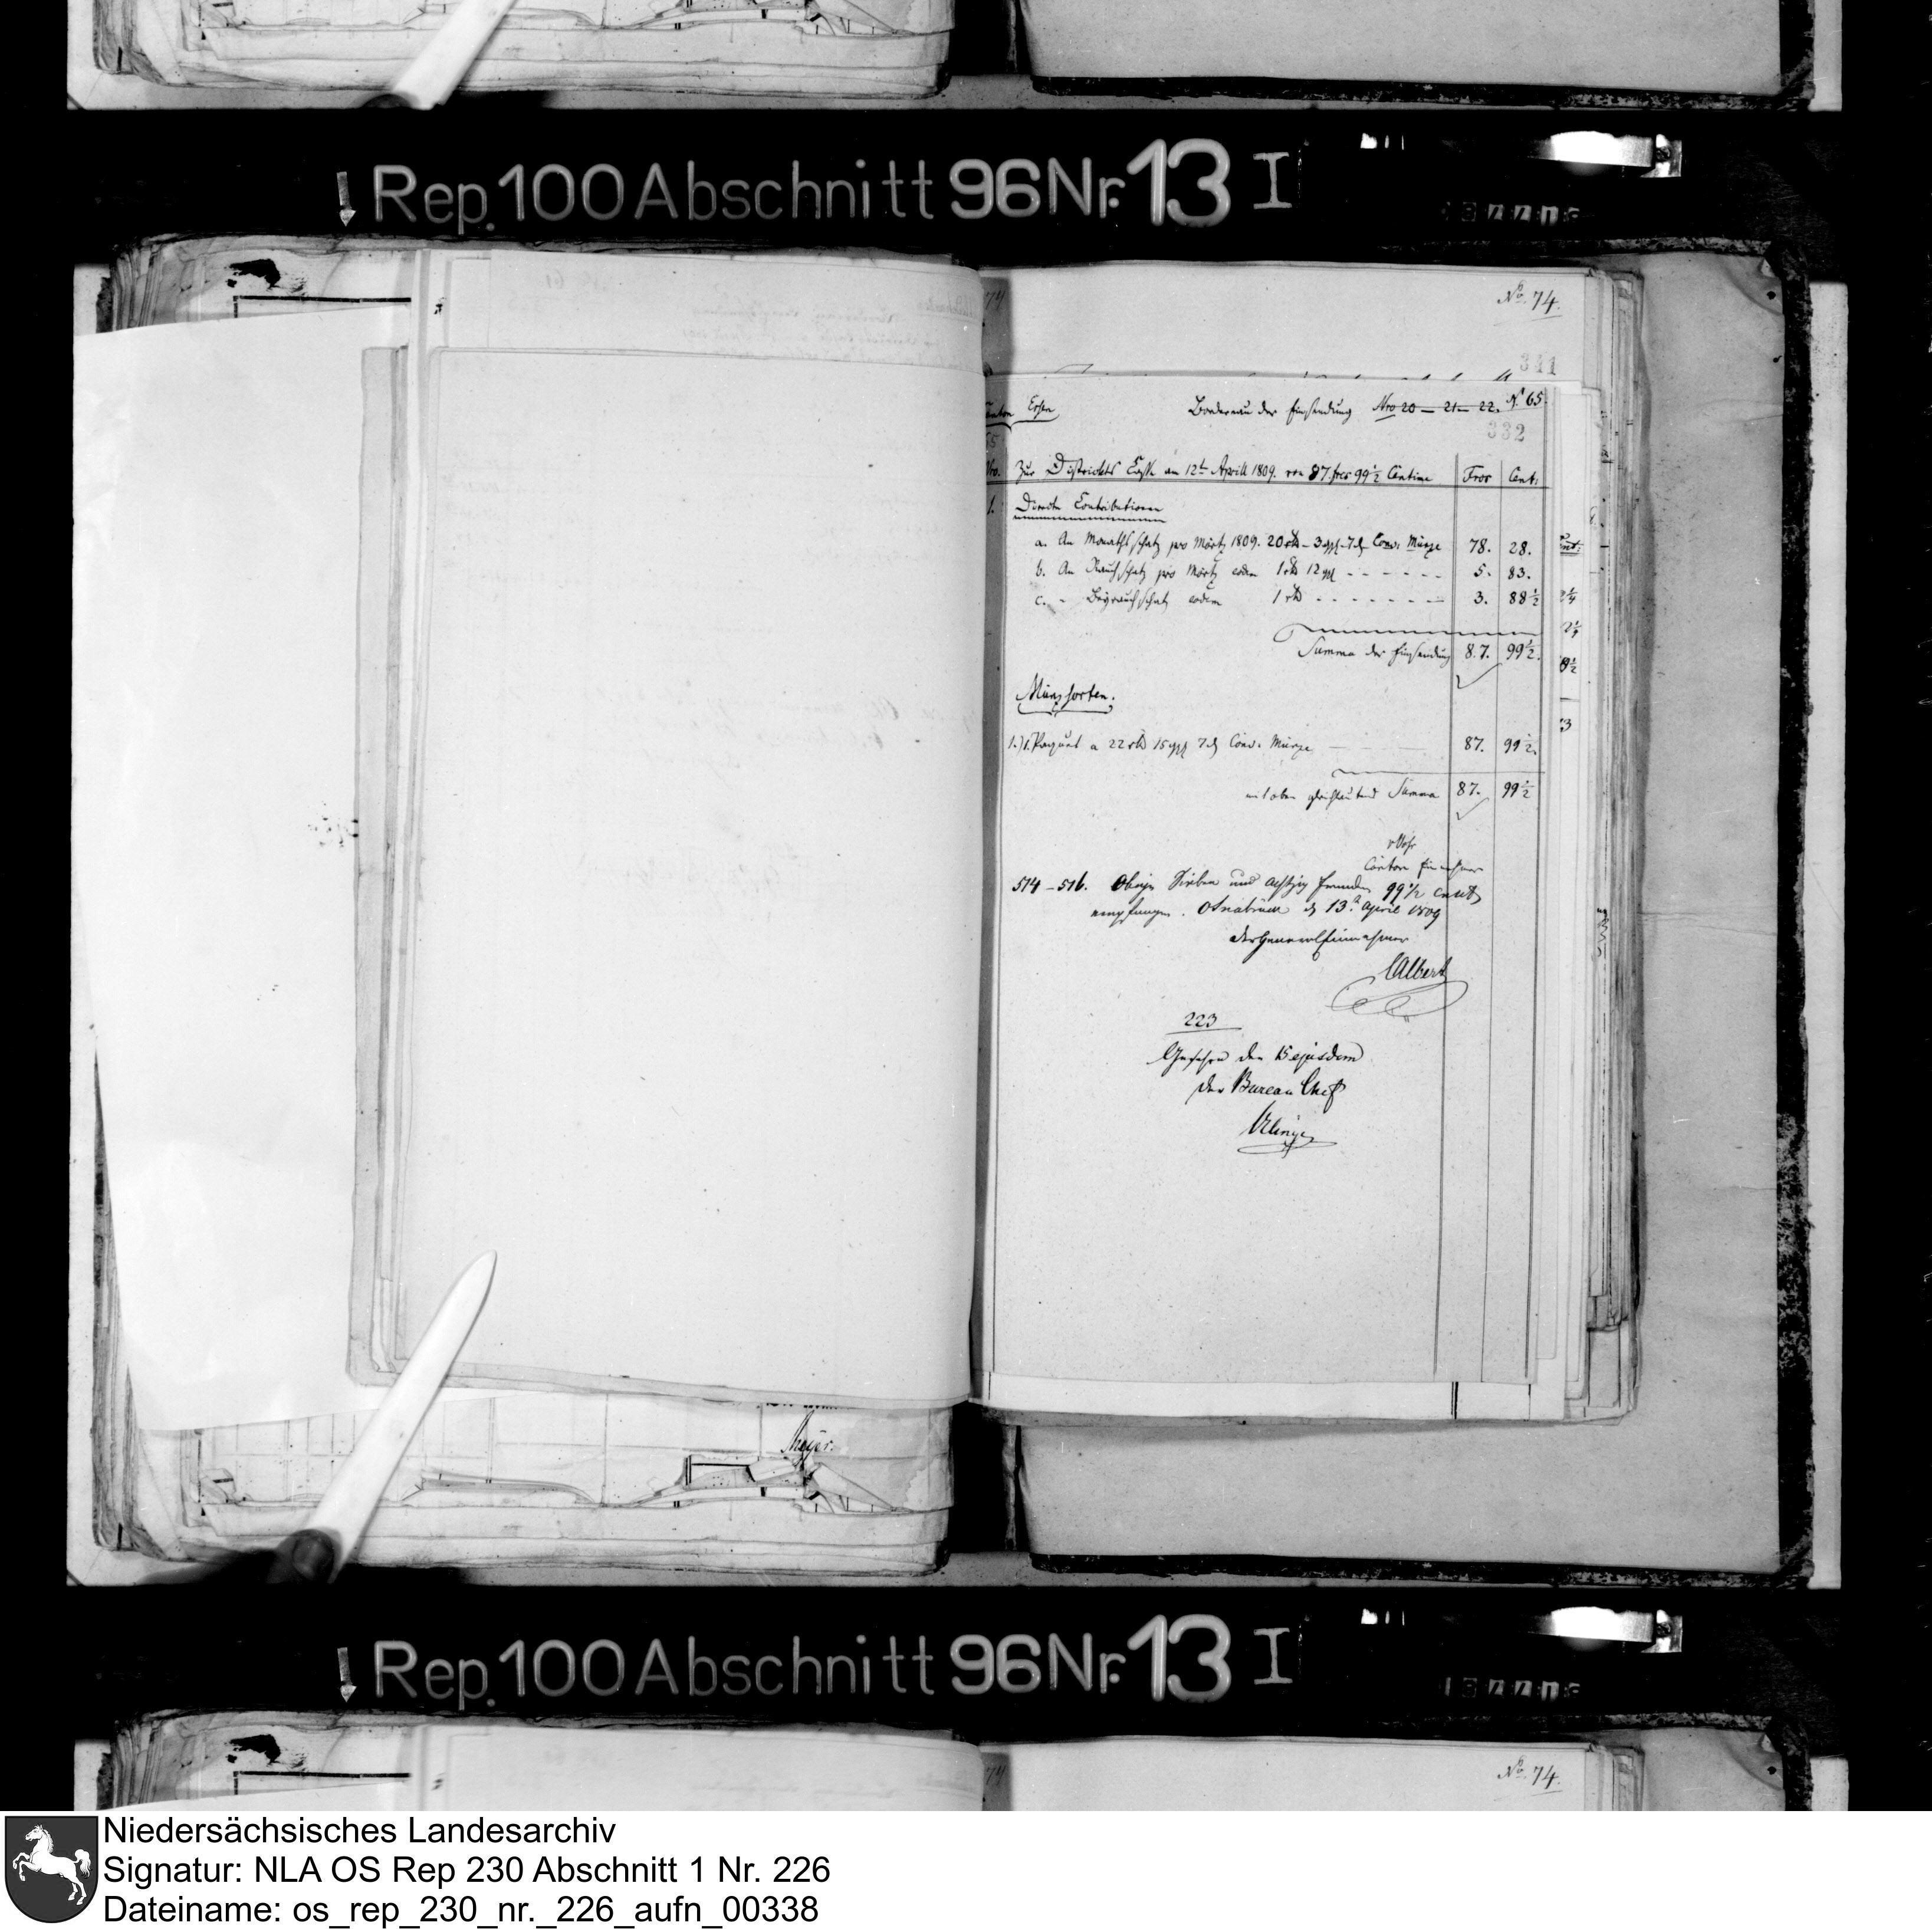 Rep. 100 Abschnitt 96 Nr. 13 I
No. 74.
341
Canton Essen
Bordereau der Einsendung Nro 20 — 21 — 22. No 65.
332
Nro. Zur Districts Casse am 12t Aprill 1809. von 87 frcs 99 1/2 Centime Frcs Cent:
1. Directe Contributionen
a. An Monathschatz pro Märtz 1809. 20 rth – 3 ggl – 7 d Conv. Münze 78. 28.
b. An Rauchschatz pro Märtz eodem 1 rth 12 ggl 5. 83.
c. " Beyrauchschatz eodem 1 rth 3. 88 1/2
Summa der Einsendung 87. 99 1/2.
Münzsorten.
1.) 1. Paquet a 22 rth 15 ggl 7 d Conv. Münze 87. 99 1/2.
mit oben gleichlautend Summa 87. 99 1/2
Canton Einnehmer
514 – 516. Obige Sieben und achtzig Franken 99 1/2 Cent
empfangen. Osnabrück d 13t April 1809
der General Einnehmer
CAlbert
223
Gesehen den 15 ejusdem
der Bureau Chef
Meyer.
Rep. 100 Abschnitt 96 Nr. 13 I
No. 74.
Niedersächsisches Landesarchiv
Signatur: NLA OS Rep 230 Abschnitt 1 Nr. 226
Dateiname: os_rep_230_nr._226_aufn_00338